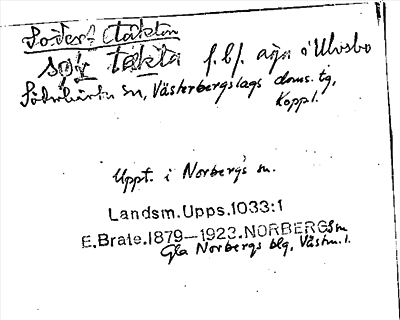 Södert Täktän
söɼ täkta f. bf. äga i Ulvsbo
Söderbärke sn, Västerbergslags doms. tg,
Koppl.
Uppt. i Norbergs sn.
Landsm.Upps.1033:1
E.Brate.1879—1923.NORBERGSsn
Gla Norbergs blg, Västm.l.